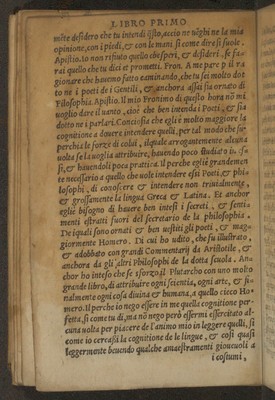 LIBRO PRIMO
molte desidero che tu intendi q̃sto, accio ne uẽghi ne la mia
opinione, con i piedi, & con le mani si come dire si suole.
Apistio. Io non rifiuto quello che speri, & desideri, se fa-
rai quello che tu dici et prometti. Fron. A me pare p il ra
gionare che hauemo fatto caminando, che tu sei molto dot
to ne i poeti de i Gentili, & anchora assai sia ornato di
Filosophia. Apistio. Il mio Fronimo di questo hora nõ mi
uoglio dare il uanto, cioè che ben intenda i Poeti, & sia
dotto ne i parlari. Conciosia che egli è molto maggiore la
cognitione a douere intendere quelli, per tal modo che su-
perchia le forze di colui, il quale arrogantemente alcuna
uolta se la uoglia attribuire, hauendo poco studiato in. es-
si, & hauendoli poca pratica. Il perche egliè grandemen
te necessario a quello che uole intendere essi Poeti, & phi-
losophi, di conoscere & intendere non triuialmente,
& grossamente la lingua Greca & Latina. Et anchor
eglie bisogno di hauere ben intesi i secreti, & senti-
menti estratti fuori del secretario de la philosophia.
De iquali sono ornati & ben uestiti gli poeti, & mag-
giormente Homero. Di cui ho udito, che fu illustrato,
& adobbato con grandi Commentarij da Aristotele, &
anchora da gli altri Philosophi de la dotta scuola. An-
chor ho inteso che se sforzo il Plutarcho con uno molto
grande libro, di attribuire ogni scientia, ogni arte, & fi-
nalmente ogni cosa diuina & humana, a quello cieco Ho-
mero. Il perche io nego essere in me quella cognitione per-
fetta, si come tu di, ma nõ nego però essermi essercitato al-
cuna uolta per piacere de l'animo mio in leggere quelli, si
come io cercassi la cognitione de le lingue, & cosi quasi
leggermente beuendo qualche amaestramenti giouenoli a
i costumi,